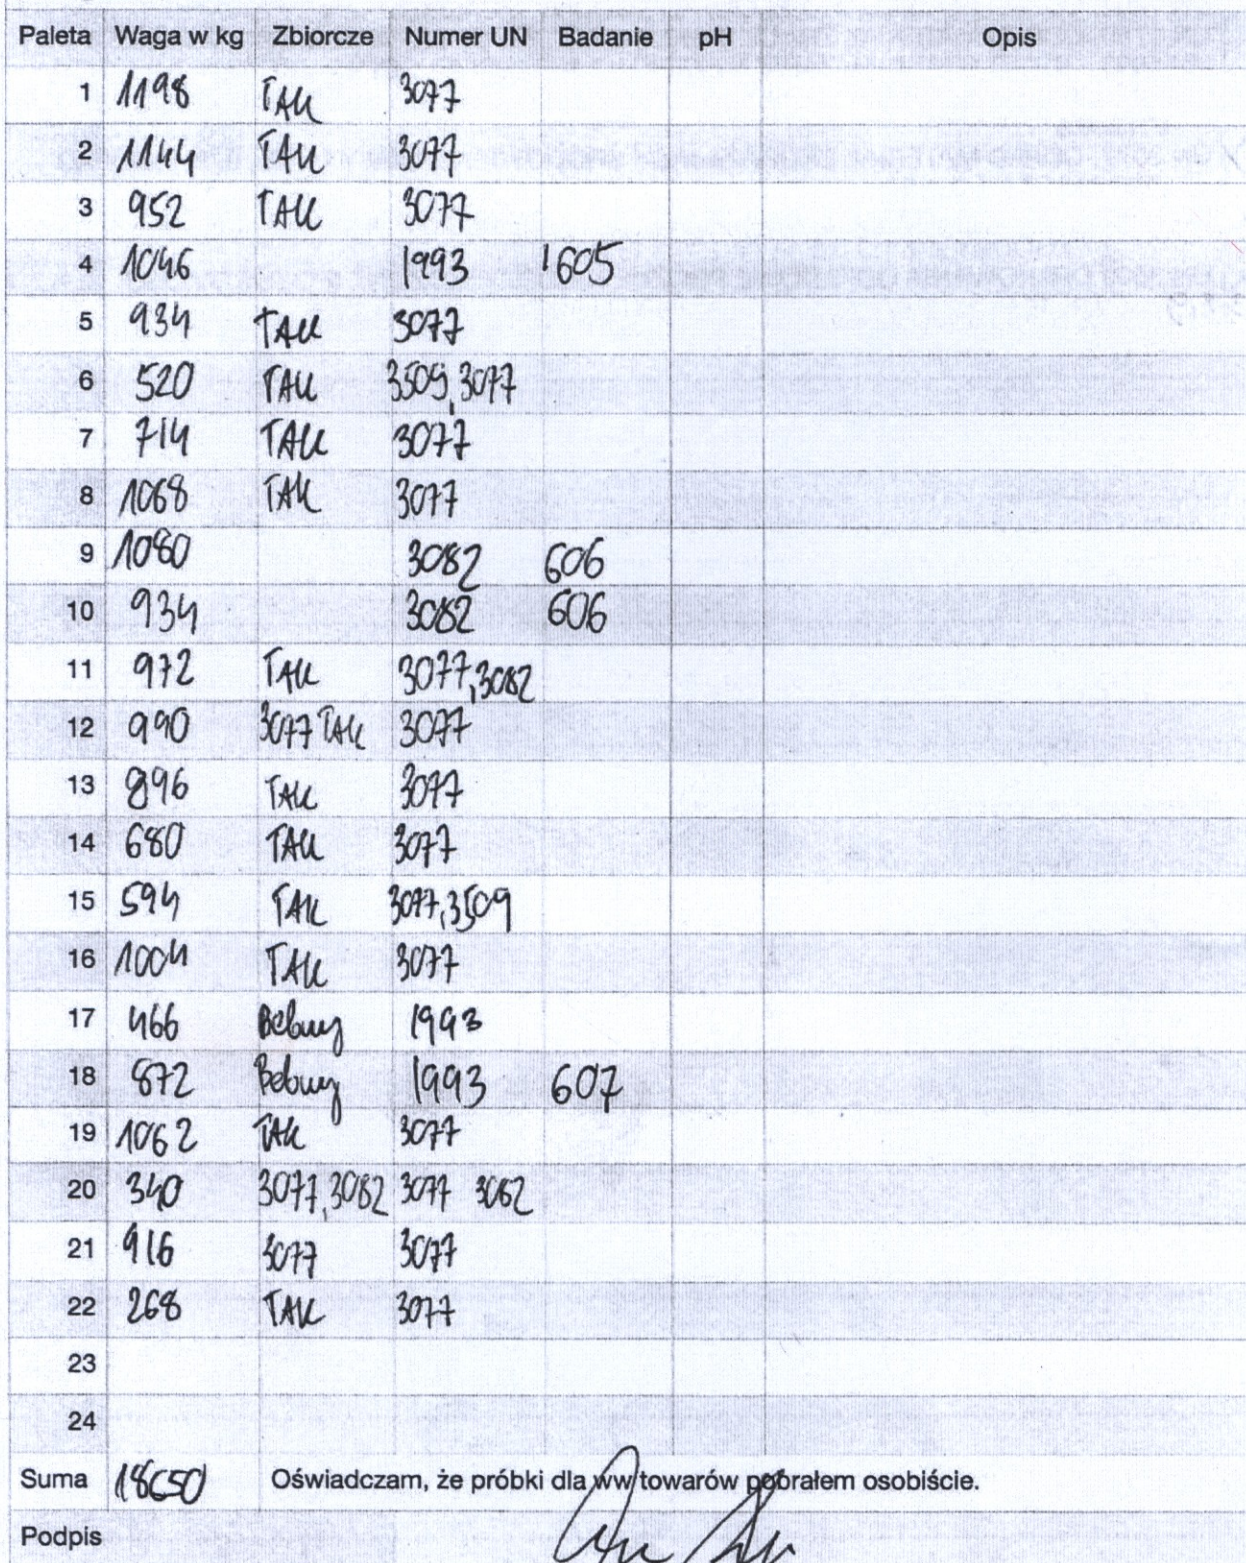 Paleta Waga w kg Zbiorcze Numer UN Badanie pH Opis
1 1198 TAK 3077
2 1144 TAK 3077
3 952 TAK 3077
4 1046 1993 605
5 934 TAK 3077
6 520 TAK 3509,3077
7 714 TAK 3077
8 1068 TAK 3077
9 1080 3082 606
10 934 3082 606
11 972 TAK 3077,3082
12 990 3077 TAK 3077
13 896 TAK 3077
14 680 TAK 3077
15 594 TAK 3077,3509
16 1004 TAK 3077
17 466 Bebny 1993
18 872 Bebny 1993 607
19 1062 TAK 3077
20 340 3077,3082 3077 3082
21 916 3077 3077
22 268 TAK 3077
23
24
Suma 18650 Oświadczam, że próbki dla ww towarów pobrałem osobiście.
Podpis